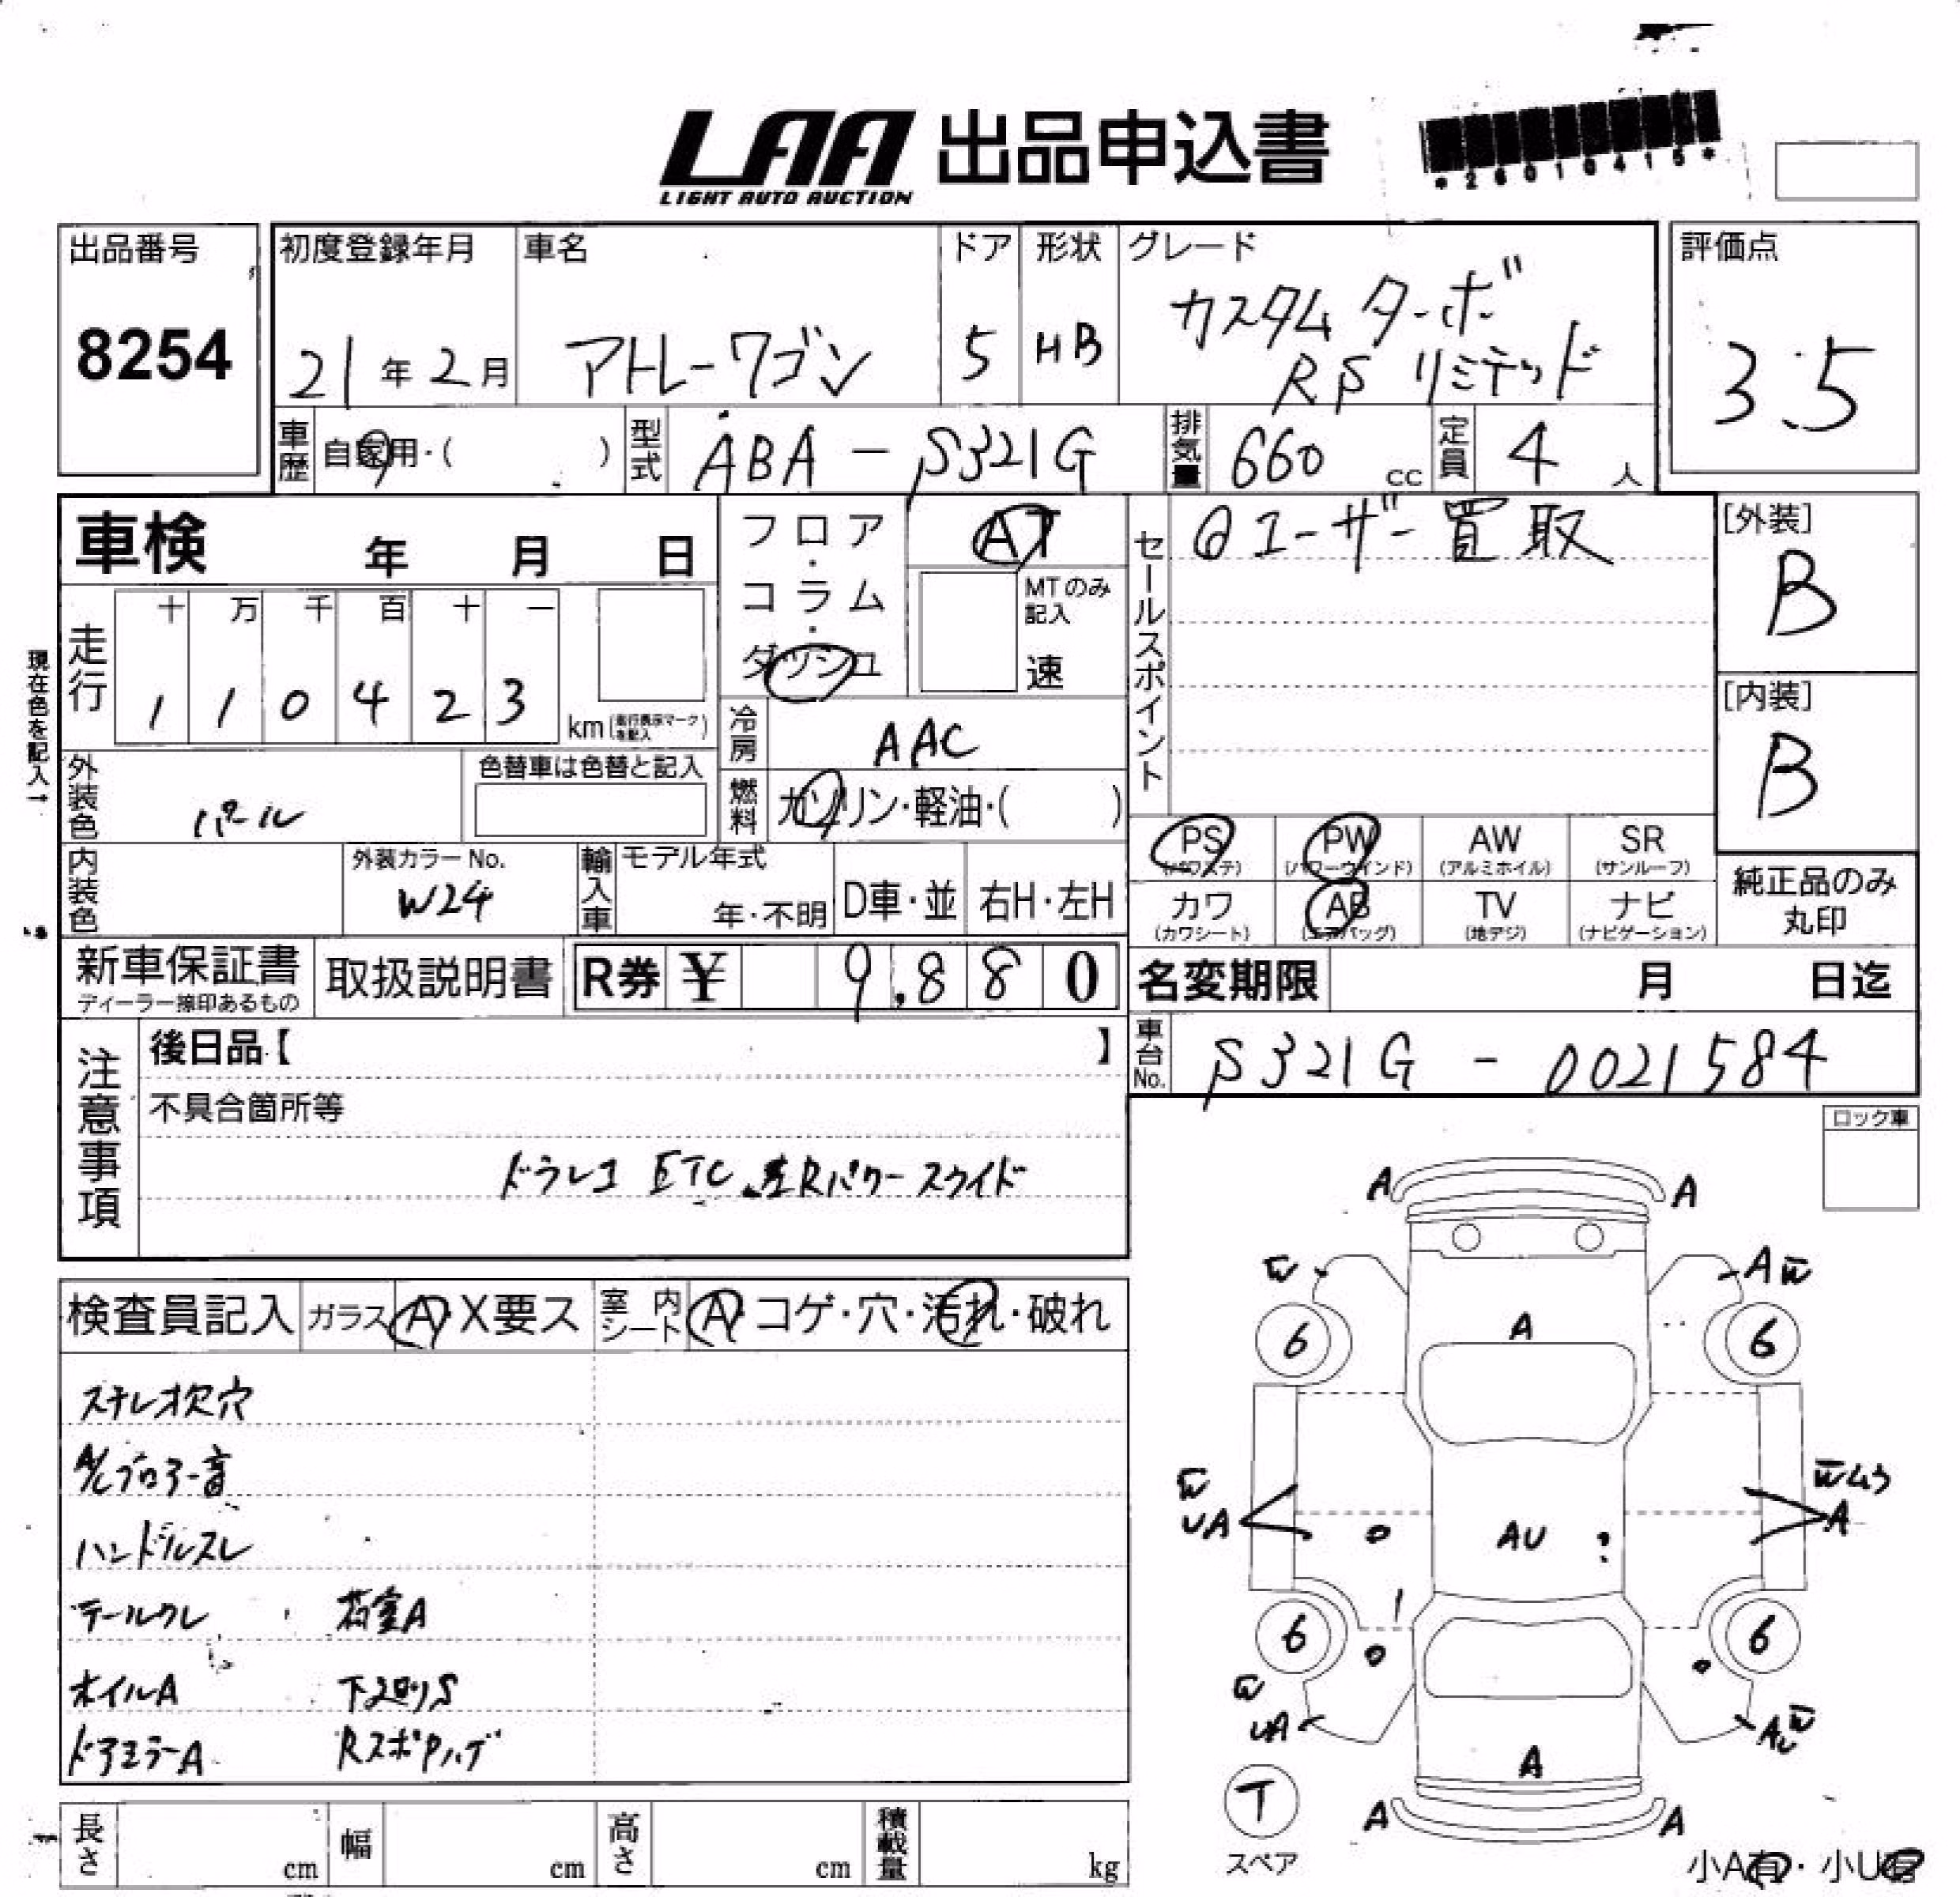 LAA 出品申込書
LIGHT AUTO AUCTION
*26010415*
出品番号
8254
初度登録年月
21年2月
車名
アトレーワゴン
ドア
5
形状
HB
グレード
カスタムターボ
RSリミテッド
評価点
3.5
車歴
自家用・( )
型式
ABA-S321G
排気量
660 cc
定員
4 人
車検 年 月 日
フロア・コラム・ダッシュ
AT
MTのみ記入
速
セールスポイント
◎ユーザー買取
[外装]
B
[内装]
B
現在色を記入→
走行
十 万 千 百 十 一
1 1 0 4 2 3
km(走行表示マークを記入)
冷房
AAC
外装色
パール
色替車は色替と記入
燃料
ガソリン・軽油・( )
PS
(パワステ)
PW
(パワーウインド)
AW
(アルミホイル)
SR
(サンルーフ)
カワ
(カワシート)
AB
(エアバッグ)
TV
(地デジ)
ナビ
(ナビゲーション)
純正品のみ
丸印
内装色
外装カラーNo.
W24
輸入車
モデル年式
年・不明
D車・並
右H・左H
新車保証書
ディーラー捺印あるもの
取扱説明書
R券 ¥ 9,880
名変期限 月 日迄
車台No.
S321G-0021584
注意事項
後日品【 】
不具合箇所等
ドラレコ ETC 左Rパワースライド
ロック車
検査員記入
ガラス A・X要ス
室内シート A・コゲ・穴・汚れ・破れ
ステレオ欠穴
A/Cブロアー音
ハンドルスレ
テールワレ 荷室A
ホイルA 下廻りS
ドアミラーA RスポPハゲ
A A
W AW
A
6 6
W
UA
AU
A
6 6
W
UA
A
T
スペア
A A
小A有・小U有
長さ cm
幅 cm
高さ cm
積載量 kg